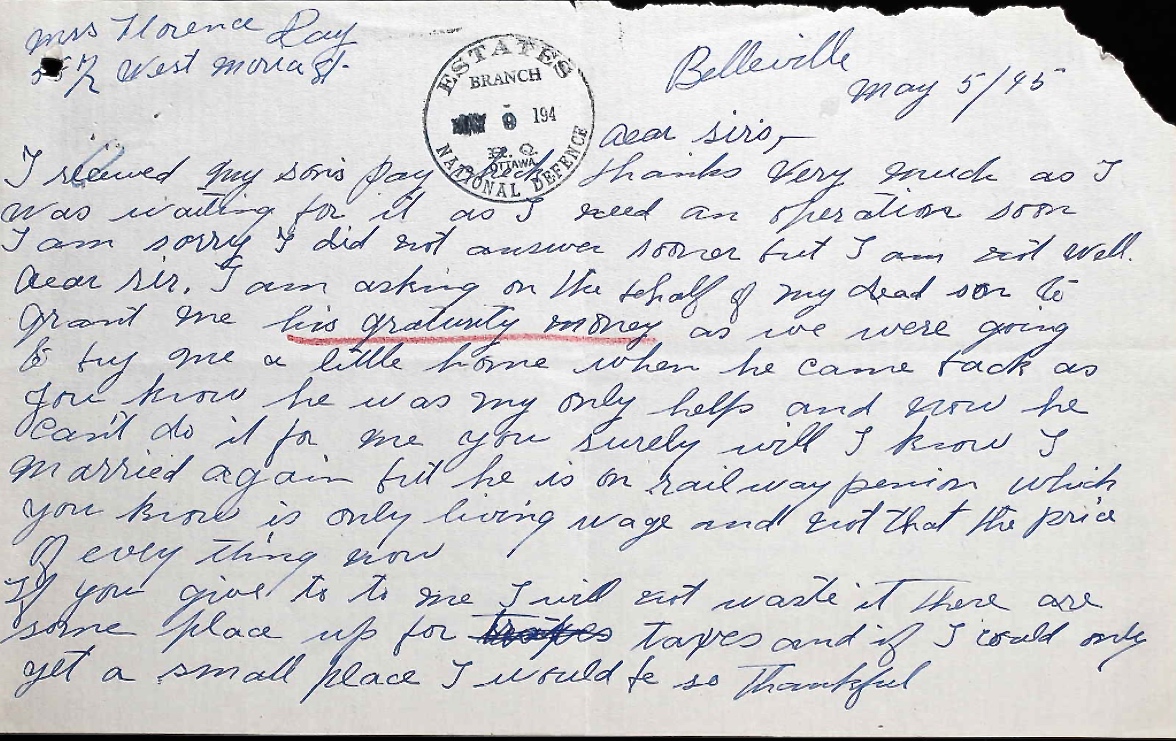 Mrs Florence Ray
West Moira St.
Belleville
May 5/45
ESTATES
BRANCH
MAY 9 194
H.Q.
OTTAWA
NATIONAL DEFENCE
Dear Sirs,-
I recieved my sons pay thanks Very much as I
was waiting for it as I need an operation soon
I am sorry I did not answer sooner but I am not well.
Dear Sir. I am asking on the behalf of my dead son to
grant me his gratuity money as we were going
to buy me a little home when he came back as
you know he was my only helps and now he
can't do it for me you surely will I know I
married again but he is on railway pension which
you know is only living wage and not that the price
of evey thing now
If you give to to me I will not waste it there are
some place up for taxes and if I could only
get a small place I would be so thankful